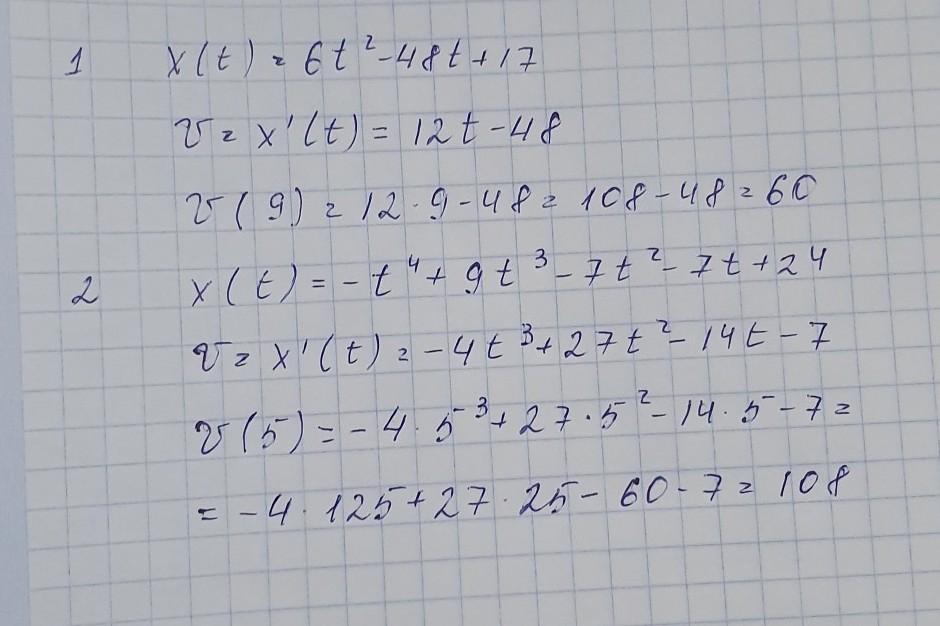 1 x(t) = 6t² - 48t + 17
v = x'(t) = 12t - 48
v(9) = 12 · 9 - 48 = 108 - 48 = 60
2 x(t) = -t⁴ + 9t³ - 7t² - 7t + 24
v = x'(t) = -4t³ + 27t² - 14t - 7
v(5) = -4 · 5³ + 27 · 5² - 14 · 5 - 7 =
= -4 · 125 + 27 · 25 - 60 - 7 = 108